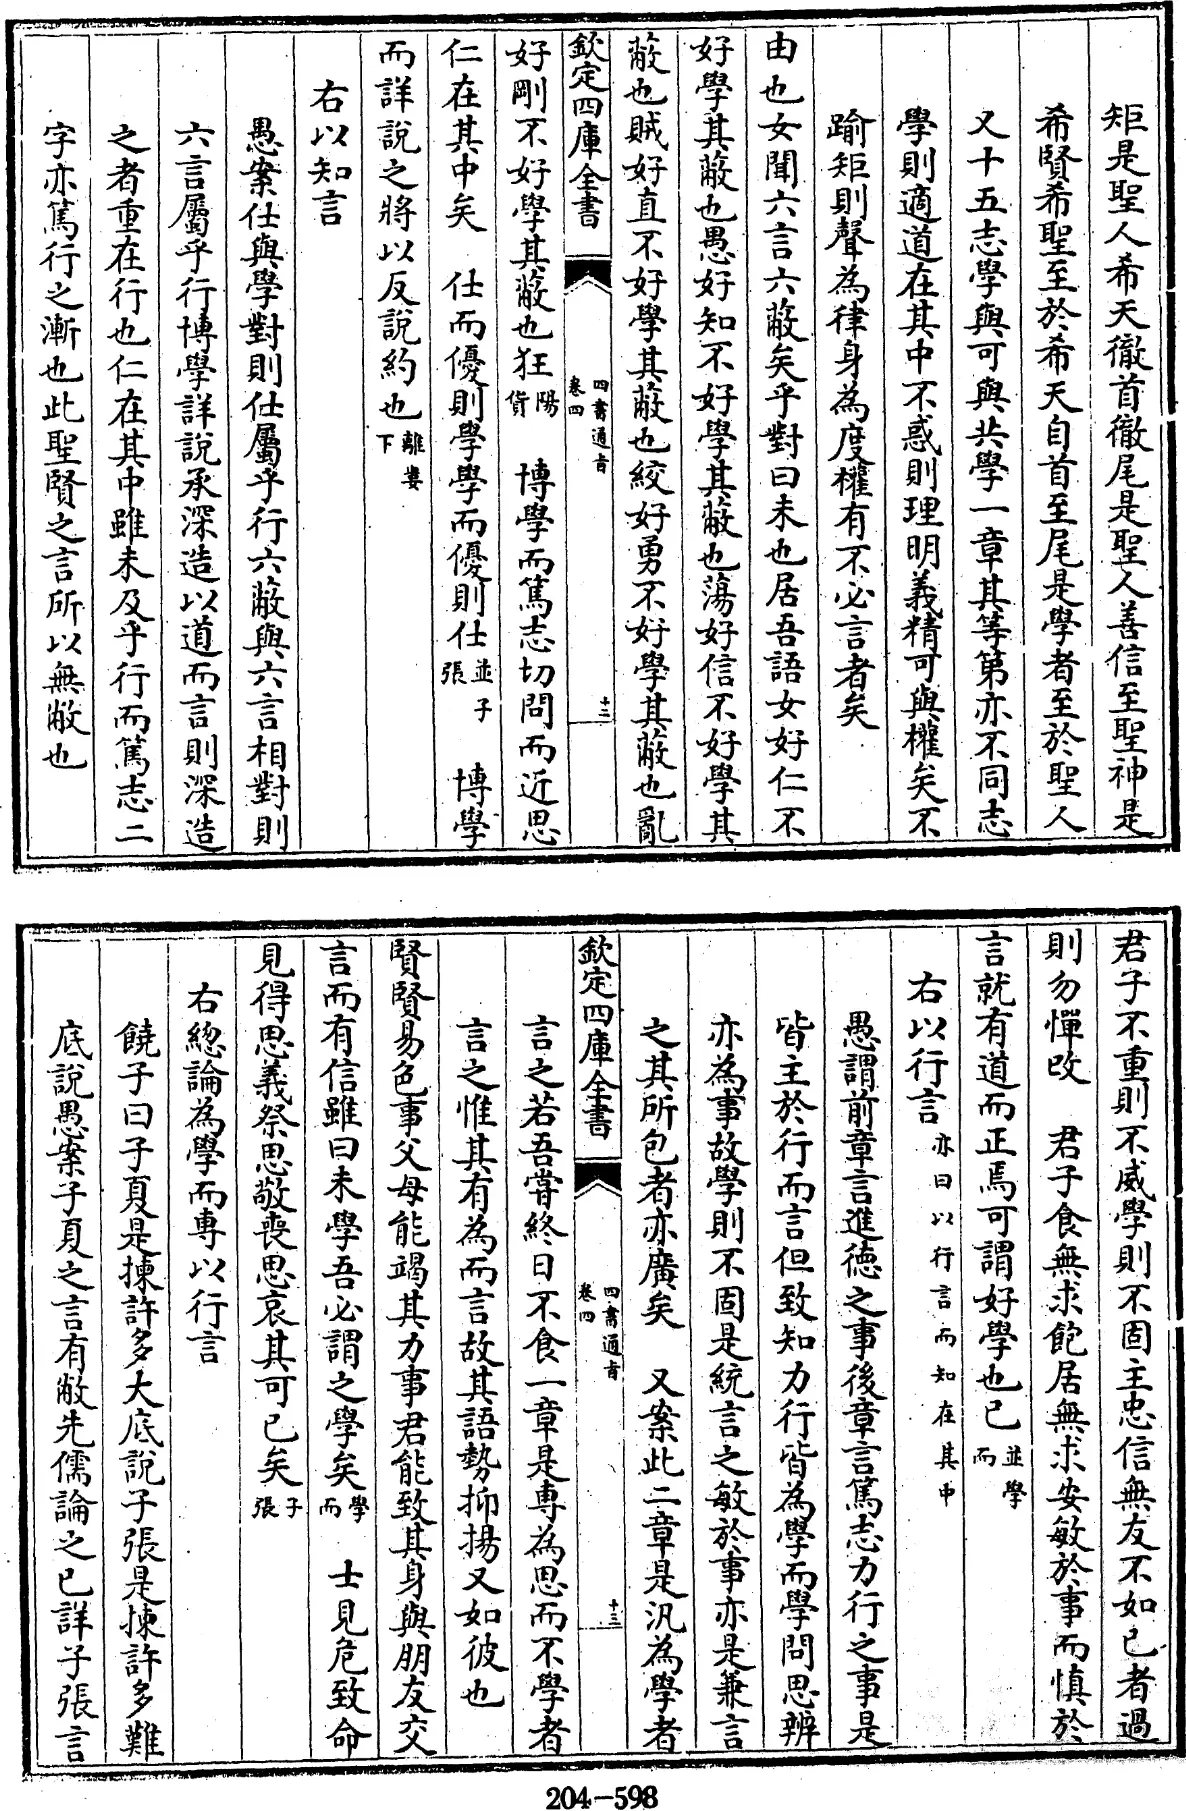 矩是聖人希天徹首徹尾是聖人善信至聖神是
希賢希聖至於希天自首至尾是學者至於聖人
又十五志學與可與共學一章其等第亦不同志
學則適道在其中不惑則理明義精可與權矣不
踰矩則聲為律身為度權有不必言者矣
由也女聞六言六蔽矣乎對曰未也居吾語女好仁不
好學其蔽也愚好知不好學其蔽也蕩好信不好學其
蔽也賊好直不好學其蔽也絞好勇不好學其蔽也亂
欽定四庫全書 四書通旨 卷四 十二
好剛不好學其蔽也狂陽貨 博學而篤志切問而近思
仁在其中矣 仕而優則學學而優則仕並子張 博學
而詳說之將以反說約也離婁下
右以知言
愚案仕與學對則仕屬乎行六蔽與六言相對則
六言屬乎行博學詳說承深造以道而言則深造
之者重在行也仁在其中雖未及乎行而篤志二
字亦篤行之漸也此聖賢之言所以無敝也
君子不重則不威學則不固主忠信無友不如己者過
則勿憚改 君子食無求飽居無求安敏於事而慎於
言就有道而正焉可謂好學也已並學而
右以行言亦曰以行言而知在其中
愚謂前章言進德之事後章言篤志力行之事是
皆主於行而言但致知力行皆為學而學問思辨
亦為事故學則不固是統言之敏於事亦是兼言
之其所包者亦廣矣 又案此二章是汎為學者
欽定四庫全書 四書通旨 卷四 十三
言之若吾嘗終日不食一章是專為思而不學者
言之惟其有為而言故其語勢抑揚又如彼也
賢賢易色事父母能竭其力事君能致其身與朋友交
言而有信雖曰未學吾必謂之學矣學而 士見危致命
見得思義祭思敬喪思哀其可已矣子張
右總論為學而專以行言
饒子曰子夏是揀許多大底說子張是揀許多難
底說愚案子夏之言有敝先儒論之已詳子張言
204-598